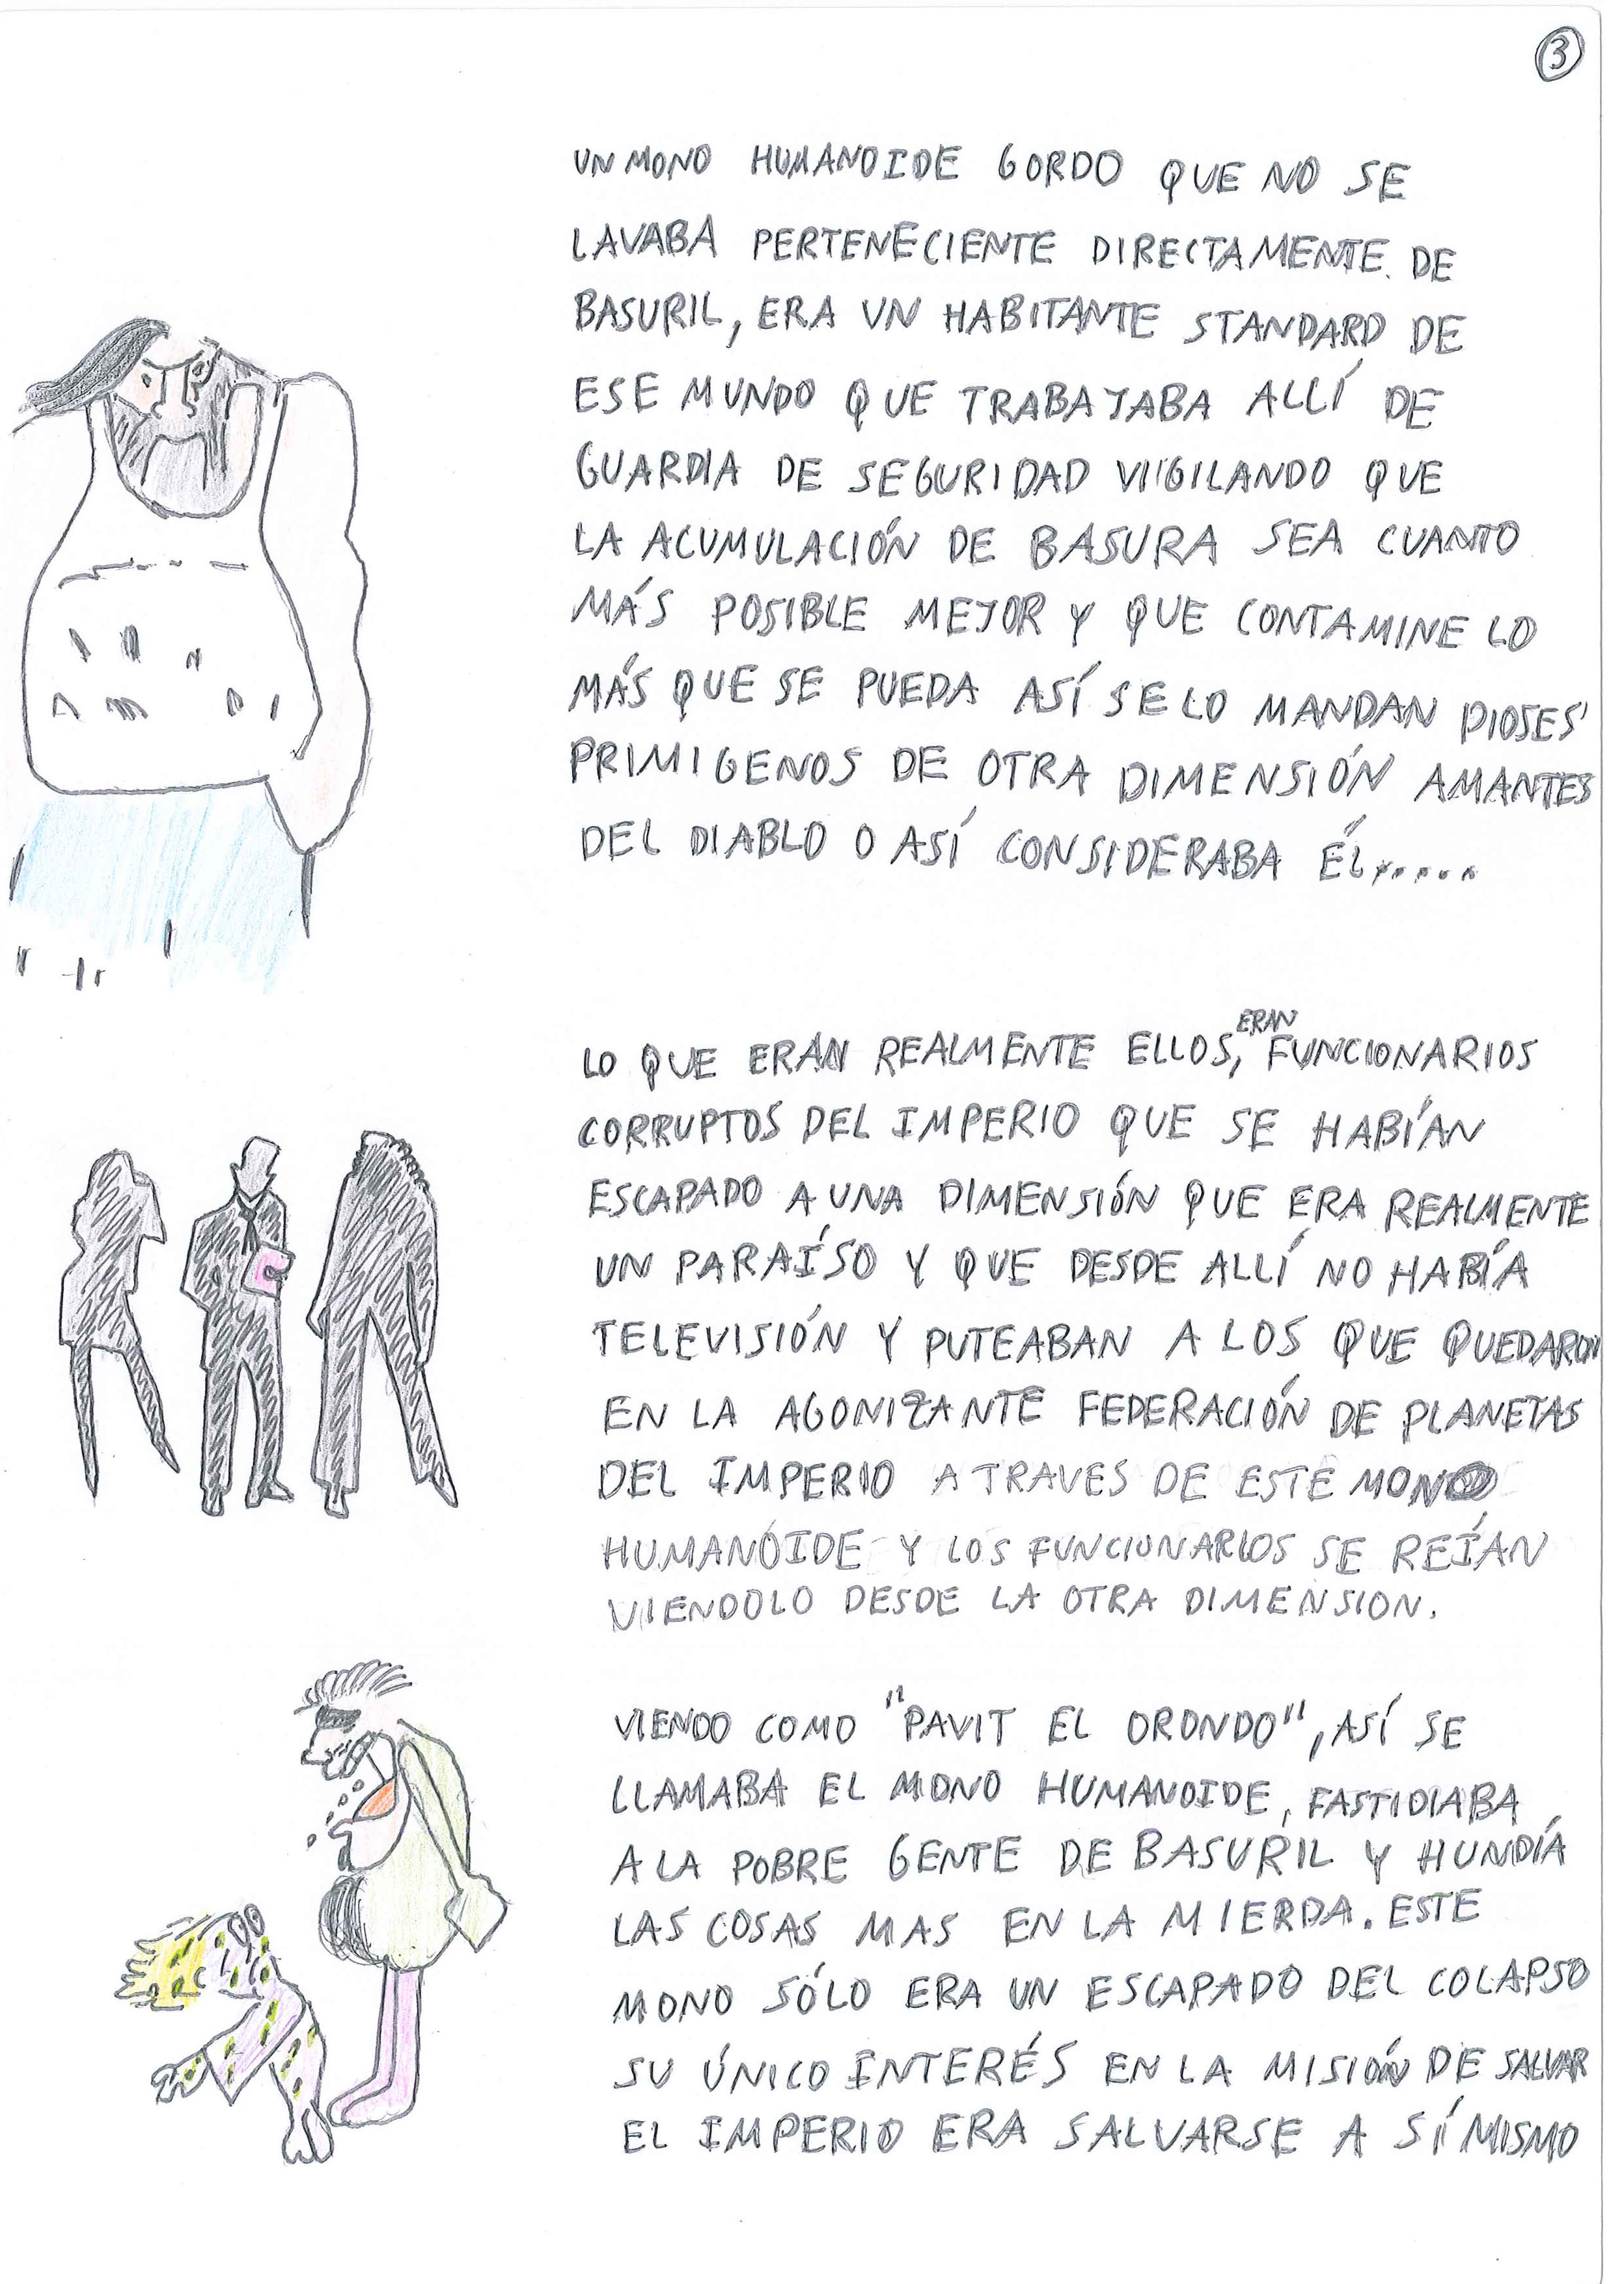 3
UN MONO HUMANOIDE GORDO QUE NO SE
LAVABA PERTENECIENTE DIRECTAMENTE DE
BASURIL, ERA UN HABITANTE STANDARD DE
ESE MUNDO QUE TRABAJABA ALLÍ DE
GUARDIA DE SEGURIDAD VIIGILANDO QUE
LA ACUMULACIÓN DE BASURA SEA CUANTO
MÁS POSIBLE MEJOR Y QUE CONTAMINE LO
MÁS QUE SE PUEDA ASÍ SE LO MANDAN DIOSES
PRIMIGENOS DE OTRA DIMENSIÓN AMANTES
DEL DIABLO O ASÍ CONSIDERABA ÉL.....
LO QUE ERAN REALMENTE ELLOS, ERAN FUNCIONARIOS
CORRUPTOS DEL IMPERIO QUE SE HABÍAN
ESCAPADO A UNA DIMENSIÓN QUE ERA REALMENTE
UN PARAÍSO Y QUE DESDE ALLÍ NO HABÍA
TELEVISIÓN Y PUTEABAN A LOS QUE QUEDARON
EN LA AGONIZANTE FEDERACIÓN DE PLANETAS
DEL IMPERIO A TRAVES DE ESTE MONO
HUMANOIDE Y LOS FUNCIONARIOS SE REÍAN
VIENDOLO DESDE LA OTRA DIMENSION.
VIENDO COMO "PAVIT EL ORONDO", ASÍ SE
LLAMABA EL MONO HUMANOIDE, FASTIDIABA
A LA POBRE GENTE DE BASURIL Y HUNDÍA
LAS COSAS MAS EN LA MIERDA. ESTE
MONO SÓLO ERA UN ESCAPADO DEL COLAPSO
SU ÚNICO INTERÉS EN LA MISIÓN DE SALVAR
EL IMPERIO ERA SALVARSE A SÍ MISMO